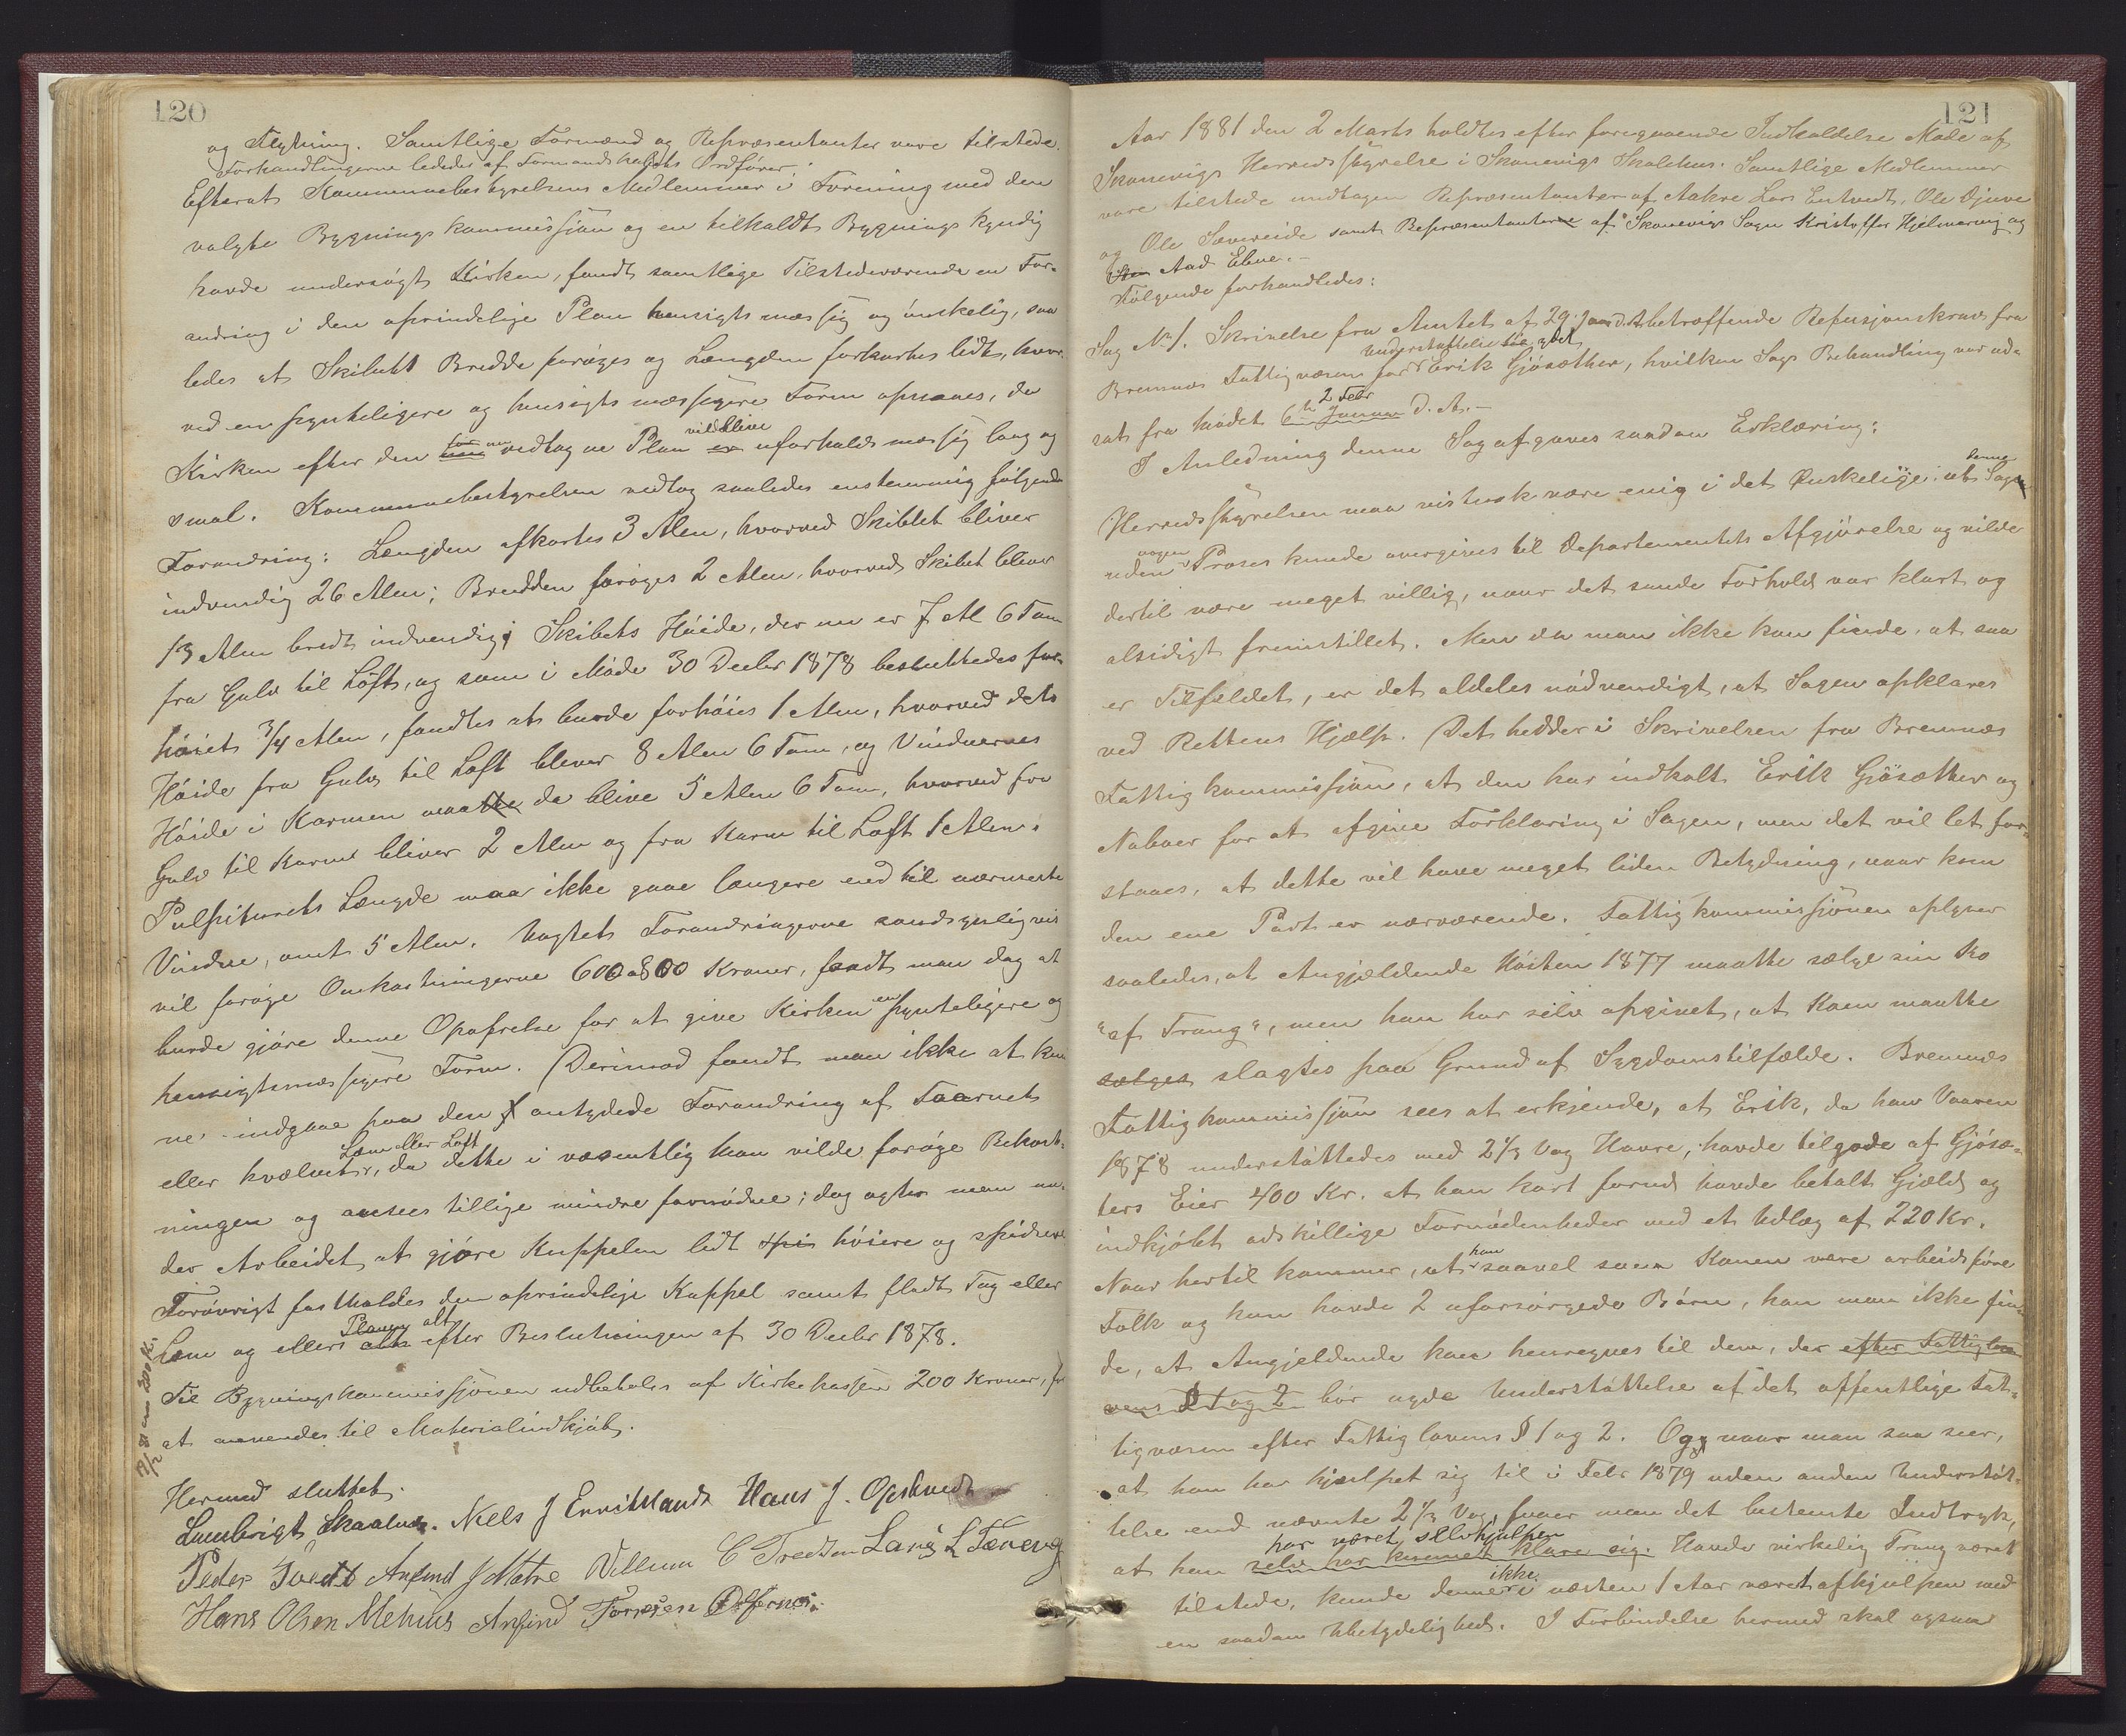 120
og Flytning. Samtlige Formænd og Repræsentanter vare tilstede.
Forhandlingerne lededes af Formandskabets Ordfører.
Efterat Kommunebestyrelsens Medlemmer i Forening med den
valgte Bygningskommissjon og en tilkaldt Bygningskyndig
havde undersøgt Kirken, fandt samtlige Tilstedeværende en For-
andring i den oprindelige Plan hensigtsmæssig og ønskelig, saa
ledes at Skibets Bredde forøges og Længden forkortes lidt, hvor
ved en pynteligere og hensigtsmæssigere Form opnaaes, da
Kirken efter den vedtagne Plan vil blive uforholdsmæssig lang og
smal. Kommunebestyrelsen vedtog saaledes enstemmig følgende
Forandring: Længden afkortes 3 Alen, hvorved Skibet bliver
indvendig 26 Alen; Bredden forøges 2 Alen, hvorved Skibet bliver
13 Alen bredt indvendig; Skibets Høide, der nu er 7 Al 6 Tom
fra Gulv til Loft, og som i Møde 30 Decbr 1878 besluttedes for-
høiet 3/4 Alen, fandtes at burde forhøies 1 Alen, hvorved dets
Høide fra Gulv til Loft bliver 8 Alen 6 Tom, og Vinduernes
Høide i Karmen maatte da blive 5 Alen 6 Tom, hvorved fra
Gulv til Karm bliver 2 Alen og fra Karm til Loft 1 Alen.
Pulpiturets Længde maa ikke gaae længere end til nærmeste
Vindue, omt 5 Alen. Uagtet Forandringerne sandsynligvis
vil forøge Omkostningerne 600 a 800 Kroner, fandt man dog at
burde gjøre denne Opofrelse for at give Kirken en pynteligere og
hensigtsmæssigere Form. Derimod fandt man ikke at kun
ne indgaae paa den antydede Forandring af Taarnet
eller hvælvet Læm eller Loft, da dette i væsentlig Mon vilde forøge Bekost-
ningen og ansees tillige mindre fornødne; dog agter man un-
der Arbeidet at gjøre Kuppelen lidt høiere og spidsere
Forøvrigt fastholdes den oprindelige Kuppel samt fladt Tag eller
Læm og ellers Planen alt efter Beslutningen af 30 Decbr 1878.
Til Bygningskommissjonen udbetales af Kirkekassen 200 Kroner, for
at anvendes til Materialindkjøb.
Hermed sluttet.
Lambrigt Skaalnes. Niels J Hans J. Opshvedt
Peder Tvedt Anfind J Matre Villum C Lars L Tæneng
Hans Olsen Mehus Anfind
121
Aar 1881 den 2 Marts holdtes efter foregaaende Indkaldelse Møde af
Skonevigs Herredsstyrelse i Skonevigs Skolehus. Samtlige Medlemmer
vare tilstede undtagen Repræsentanter af Aakre Lars Ole Djuve
og Ole Sævereide samt Repræsentanterne af Skonevigs Sogn Kristoffer Hjelmevig og
Aad Ebne.-
Følgende forhandledes:
Sag No 1. Skrivelse fra Amtet af 29 Jan d. A. betræffende Refusjonskrav fra
Bremnes Fattigvæsen for Understøttelse ydet Erik Gjøsæther, hvilken Sags Behandling var ud-
sat fra Mødet 2 Febr d. A. -
I Anledning denne Sag afgaves saadan Erklæring:
Herredsstyrelsen maa vistnok være enig i det Ønskelige i at denne Sag
uden nogen Proses kunde overgives til Departementets Afgjørelse og vilde
dertil være meget villig, naar det sande Forhold var klart og
alsidigt fremstillet. Men da man ikke kan finde, at saa
er Tilfældet, er det aldeles nødvendigt, at Sagen opklares
ved Rettens Hjælp. Det hedder i Skrivelsen fra Bremnes
Fattigkommissjon, at den har indkalt Erik Gjøsæther og
Naboer for at afgive Forklaring i Sagen, men det vil let for-
staaes, at dette vil have meget liden Betydning, naar kun
den ene Part er nærværende. Fattigkommissjonen oplyser
saaledes, at Angjældende Høsten 1877 maatte sælge sin Ko
"af Trang", men han har selv opgivet, at Koen maatte
sælges slagtes paa Grund af Sygdomstilfælde. Bremnes
Fattigkommissjon sees at erkjende, at Erik, da han Vaaren
1878 understøttedes med 2 1/3 Vog Havre, havde tilgode af Gjøsæ-
ters Eier 400 Kr. at han kort forud havde betalt Gjæld og
indkjøbt adskillige Fornødenheder med et Udlæg af 220 Kr.
Naar hertil kommer, at han saavel som Konen vare arbeidsføre
Folk og kun havde 2 uforsørgede Børn, kan man ikke fin-
de, at Angjældende kan henregnes til dem, der efter Fattiglo
vens § 1 og 2 bør nyde Understøttelse af det offentlige Fat-
tigvæsen efter Fattiglovens § 1 og 2. Og naar man saa seer,
at han har hjulpet sig til i Febr 1879 uden anden Understøt-
telse end nævnte 2 1/3 Vog, faaer man det bestemte Indtryk,
at han har været selvhjulpen selv har kunnet klare sig. Havde virkelig Trang været
tilstede, kunde denne ikke i næsten 1 Aar været afhjulpen med
en saadan Ubetydelighed. I Forbindelse hermed skal ogsaa